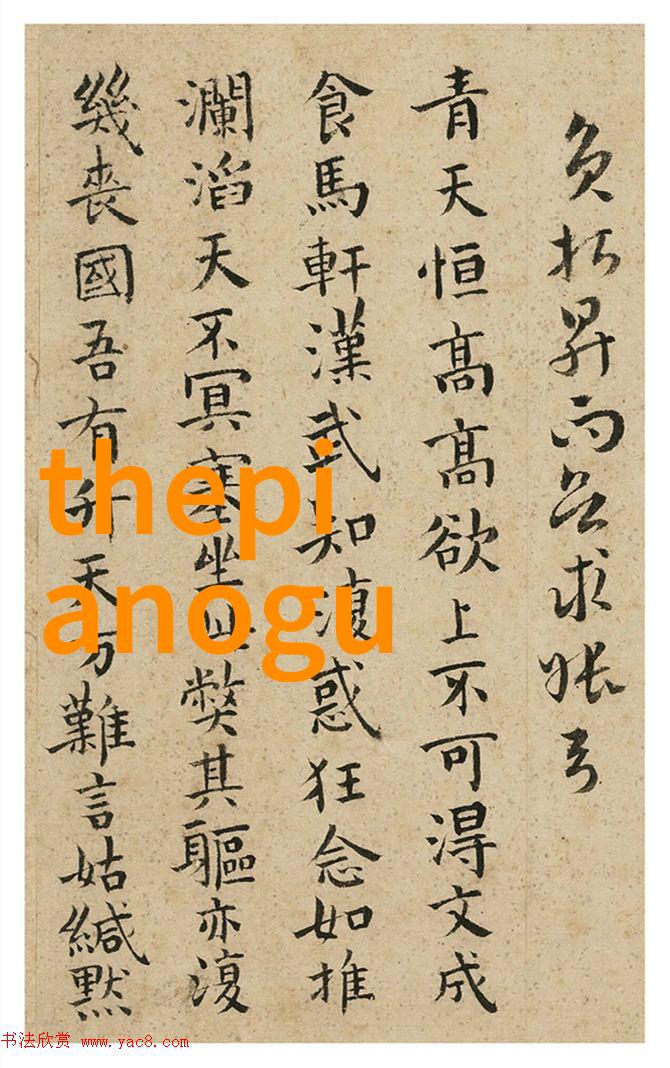 昇而求
青天恒高高欲上不可得文成
食馬軒漢武知復惑狂念如推
瀾滔天不冥塞坐此弊其軀亦復
幾喪國吾有升天方難言姑緘默
thepi
anogu
书法欣赏 www.yac8.com